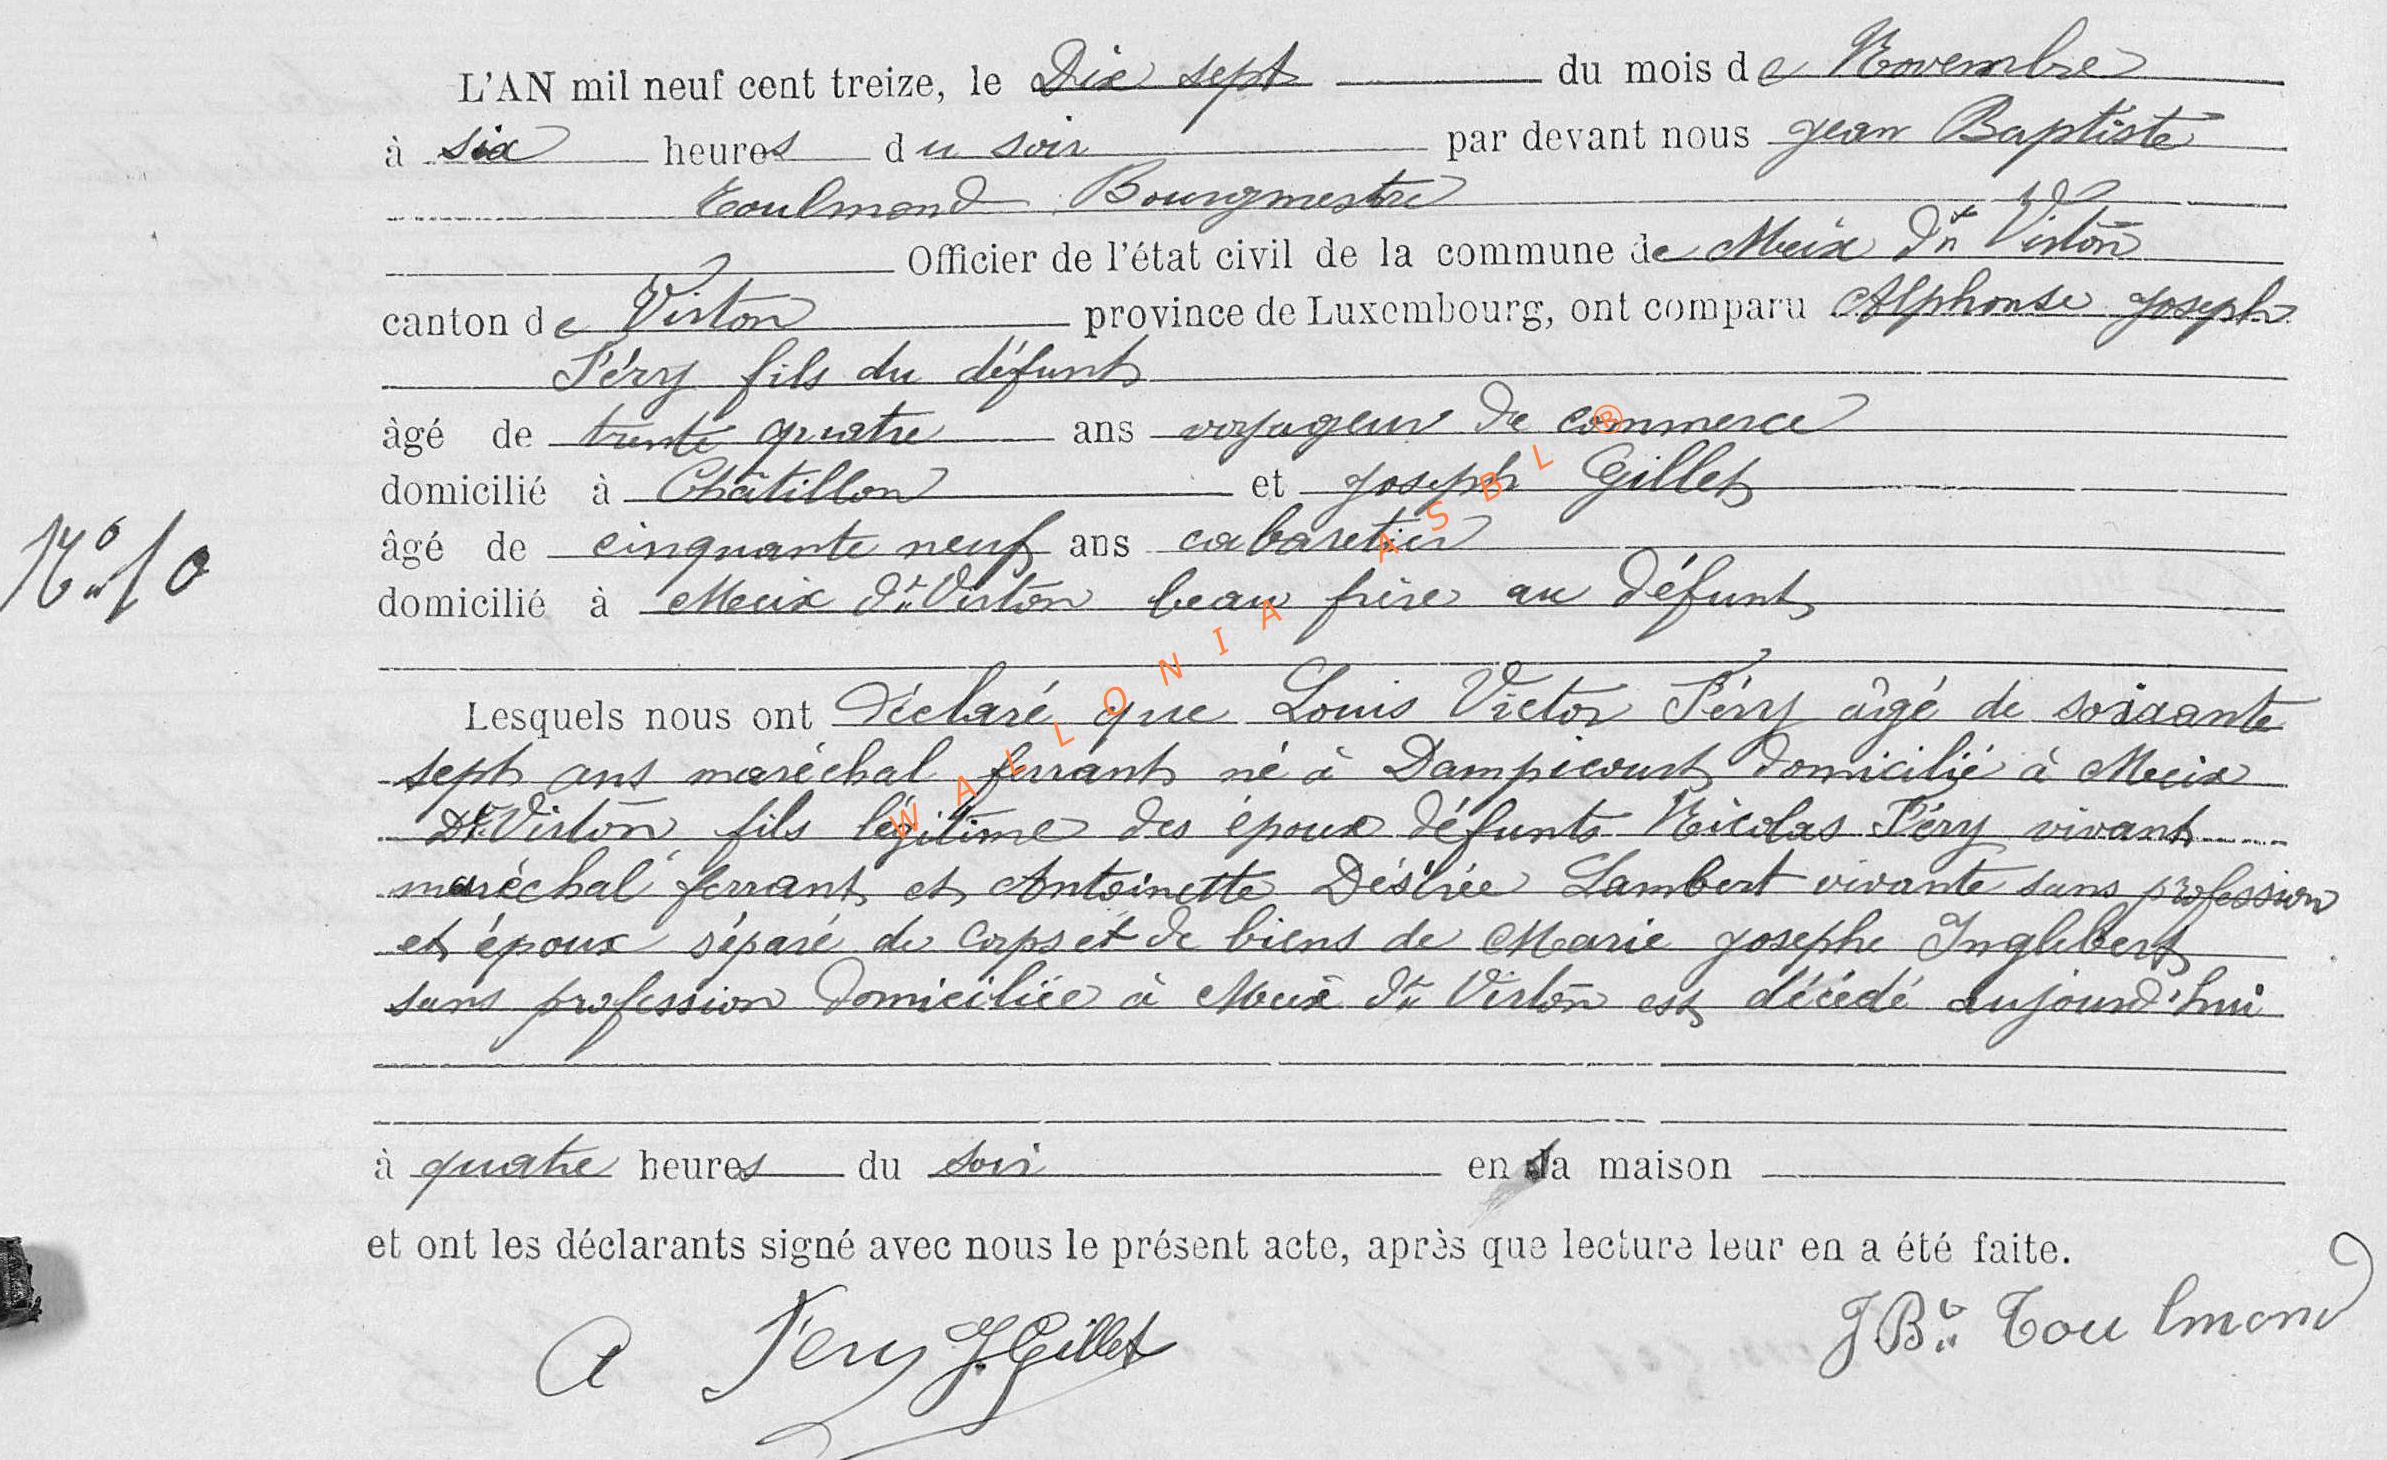 L'AN mil neuf cent treize, le Dix sept du mois de Novembre
à six heures du soir par devant nous Jean Baptiste
Toulmond Bourgmestre
Officier de l'état civil de la commune de Meix Dt Virton
canton de Virton province de Luxembourg, ont comparu Alphonse Joseph
Féry fils du défunt
âgé de trente quatre ans voyageur de commerce
domicilié à Châtillon et Joseph Gillet
âgé de cinquante neuf ans cabaretier
N° 10
domicilié à Meix Dt Virton beau frère au défunt
Lesquels nous ont déclaré que Louis Victor Féry âgé de soixante
sept ans maréchal ferrant né à Dampicourt domicilié à Meix
Dt Virton fils légitime des époux défunts Nicolas Féry vivant
maréchal ferrant et Antoinette Désirée Lambert vivante sans profession
et époux séparé de corps et de biens de Marie Josephe Inglebert
sans profession domiciliée à Meix Dt Virton est décédé aujourd'hui
à quatre heures du soir en sa maison
et ont les déclarants signé avec nous le présent acte, après que lecture leur en a été faite.
A Fery J. Gillet JBte Toulmond
WALLONIA ASBL ®